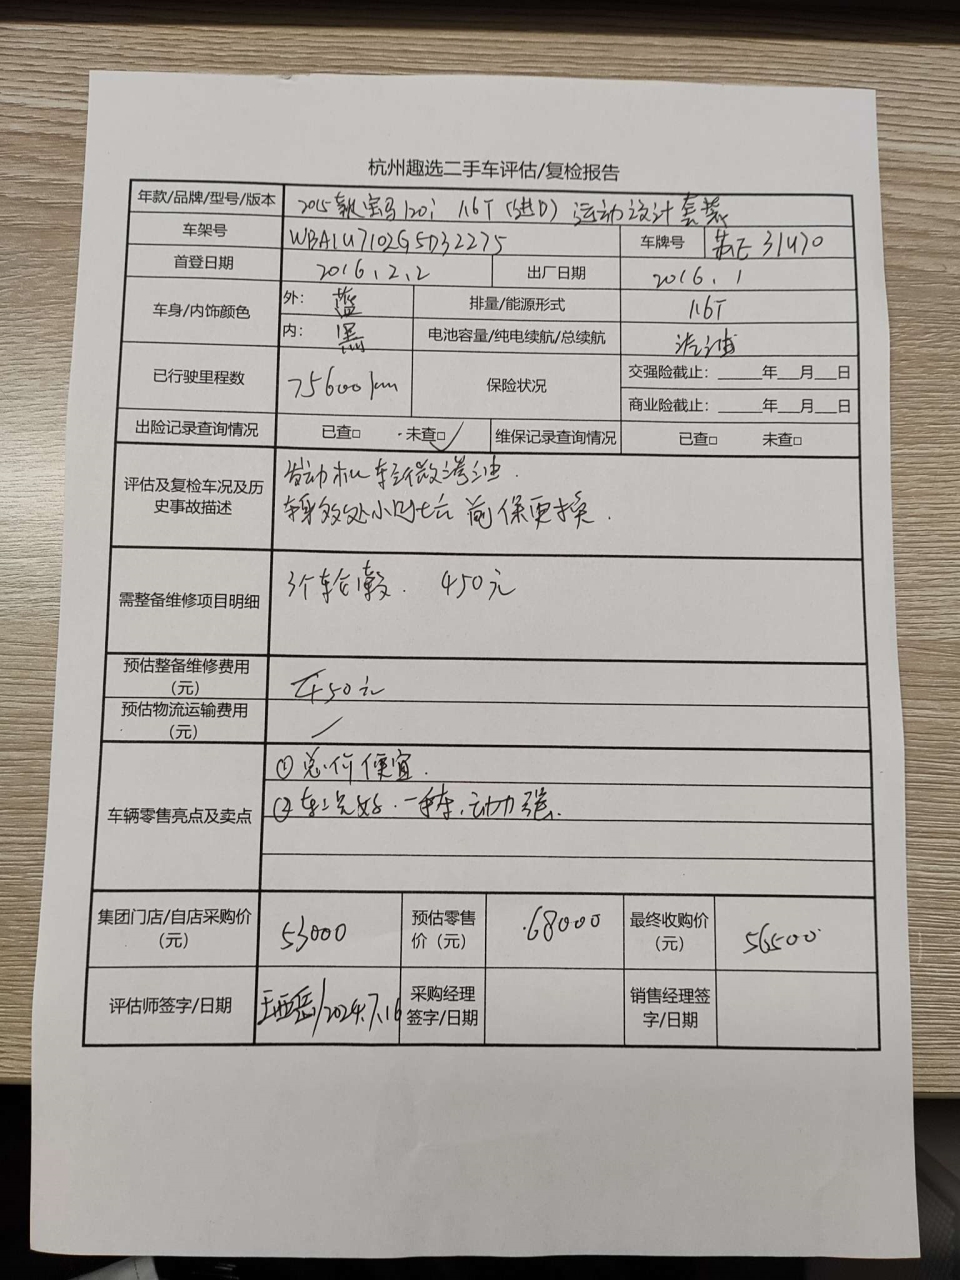 杭州趣选二手车评估/复检报告
年款/品牌/型号/版本 2015款宝马120i 1.6T（进口）运动设计套装
车架号 WBA1U7102G5D32275 车牌号
首登日期 2016.2.2 出厂日期 2016.1
车身/内饰颜色 外: 蓝 排量/能源形式 1.6T
内: 黑 电池容量/纯电续航/总续航 汽油
已行驶里程数 75600km 保险状况 交强险截止: ______年___月___日
商业险截止: ______年___月___日
出险记录查询情况 已查□ 未查□ ✓ 维保记录查询情况 已查□ 未查□
评估及复检车况及历
史事故描述
发动机轻微渗油.
车身多处小凹 前保更换.
需整备维修项目明细 3个轮毂. 450元
预估整备维修费用
（元）
50元
预估物流运输费用
（元）
/
车辆零售亮点及卖点
① 总价便宜.
② 车况好.一手车.动力强.
集团门店/自店采购价
（元）
53000
预估零售
价（元）
68000
最终收购价
（元）
56500
评估师签字/日期 /2024.7.16
采购经理
签字/日期
销售经理签
字/日期